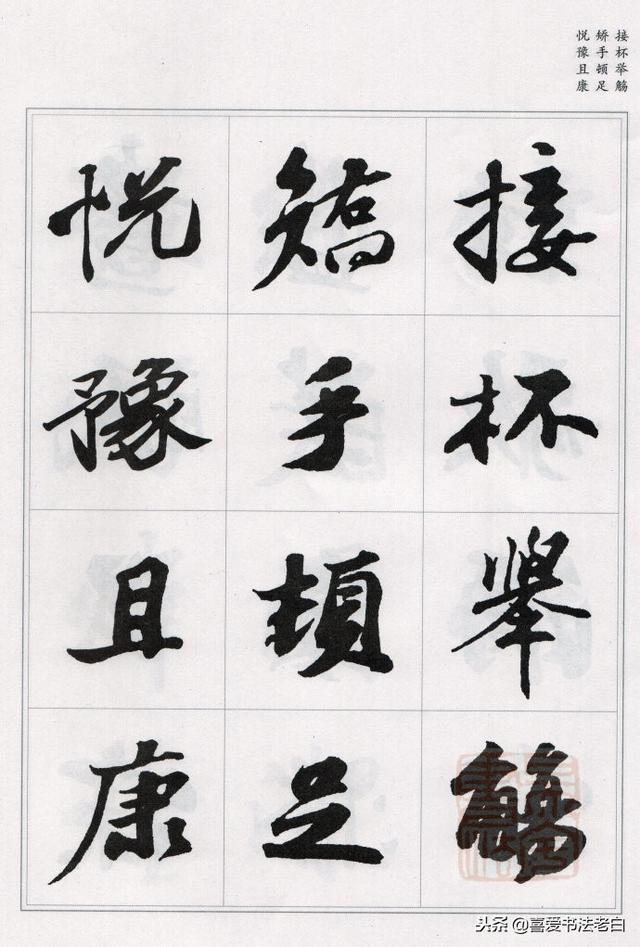 接杯举觞
矫手顿足
悦豫且康
接杯舉觴
矯手頓足
悦豫且康
头条@喜爱书法老白